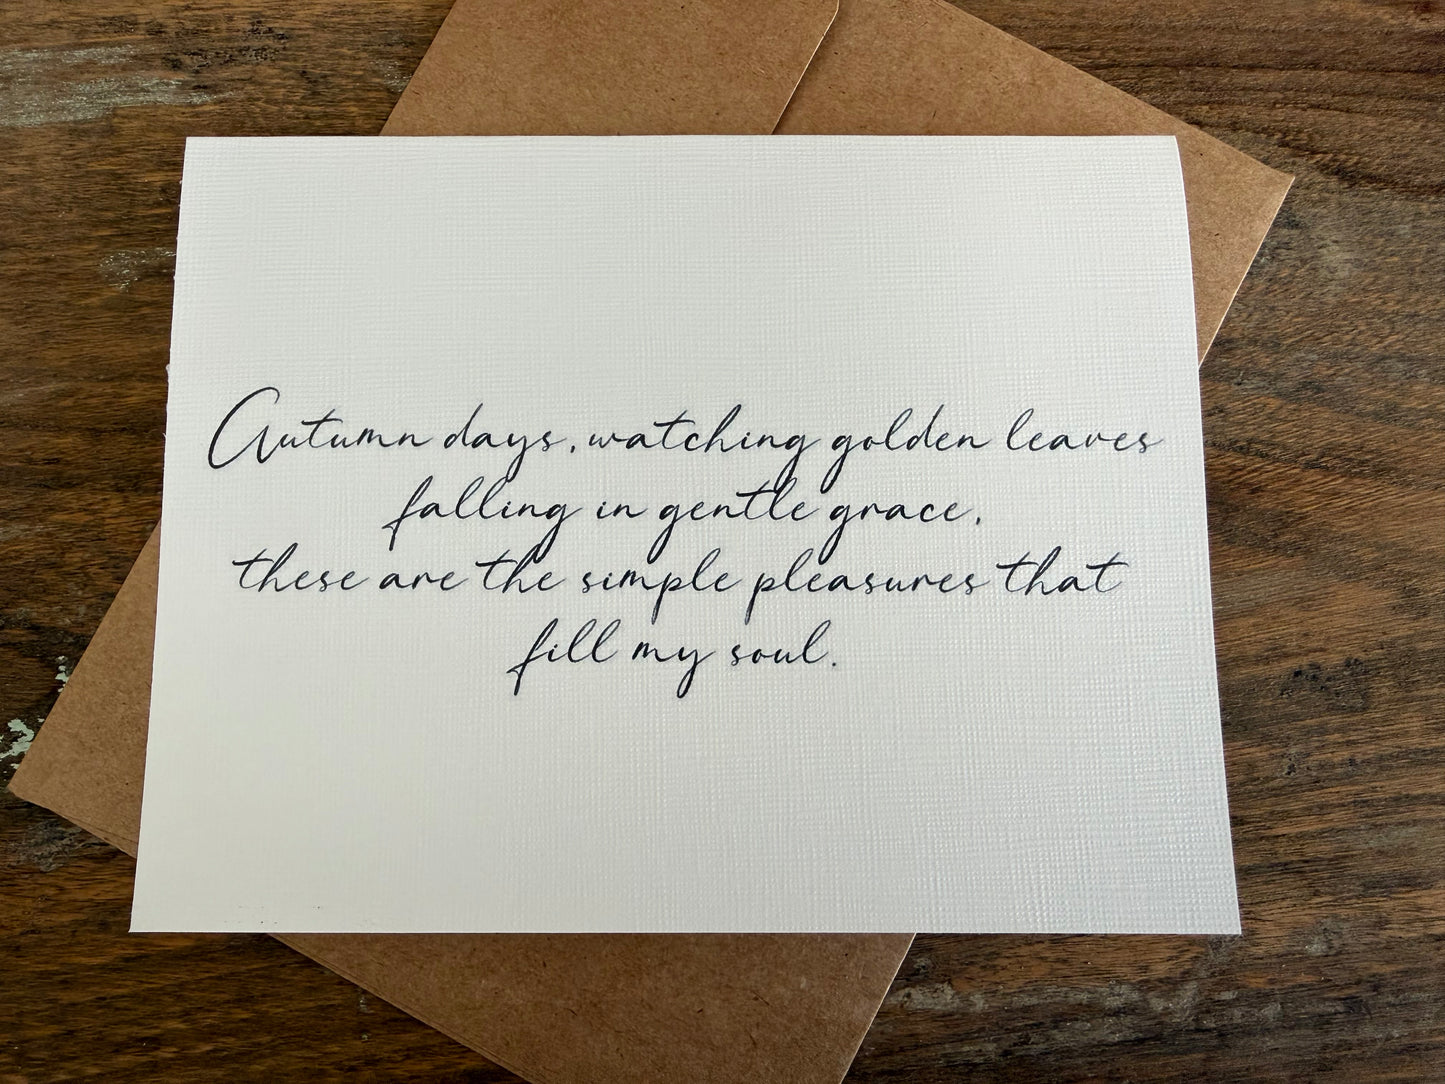 Autumn days, watching golden leaves
falling in gentle grace,
these are the simple pleasures that
fill my soul.